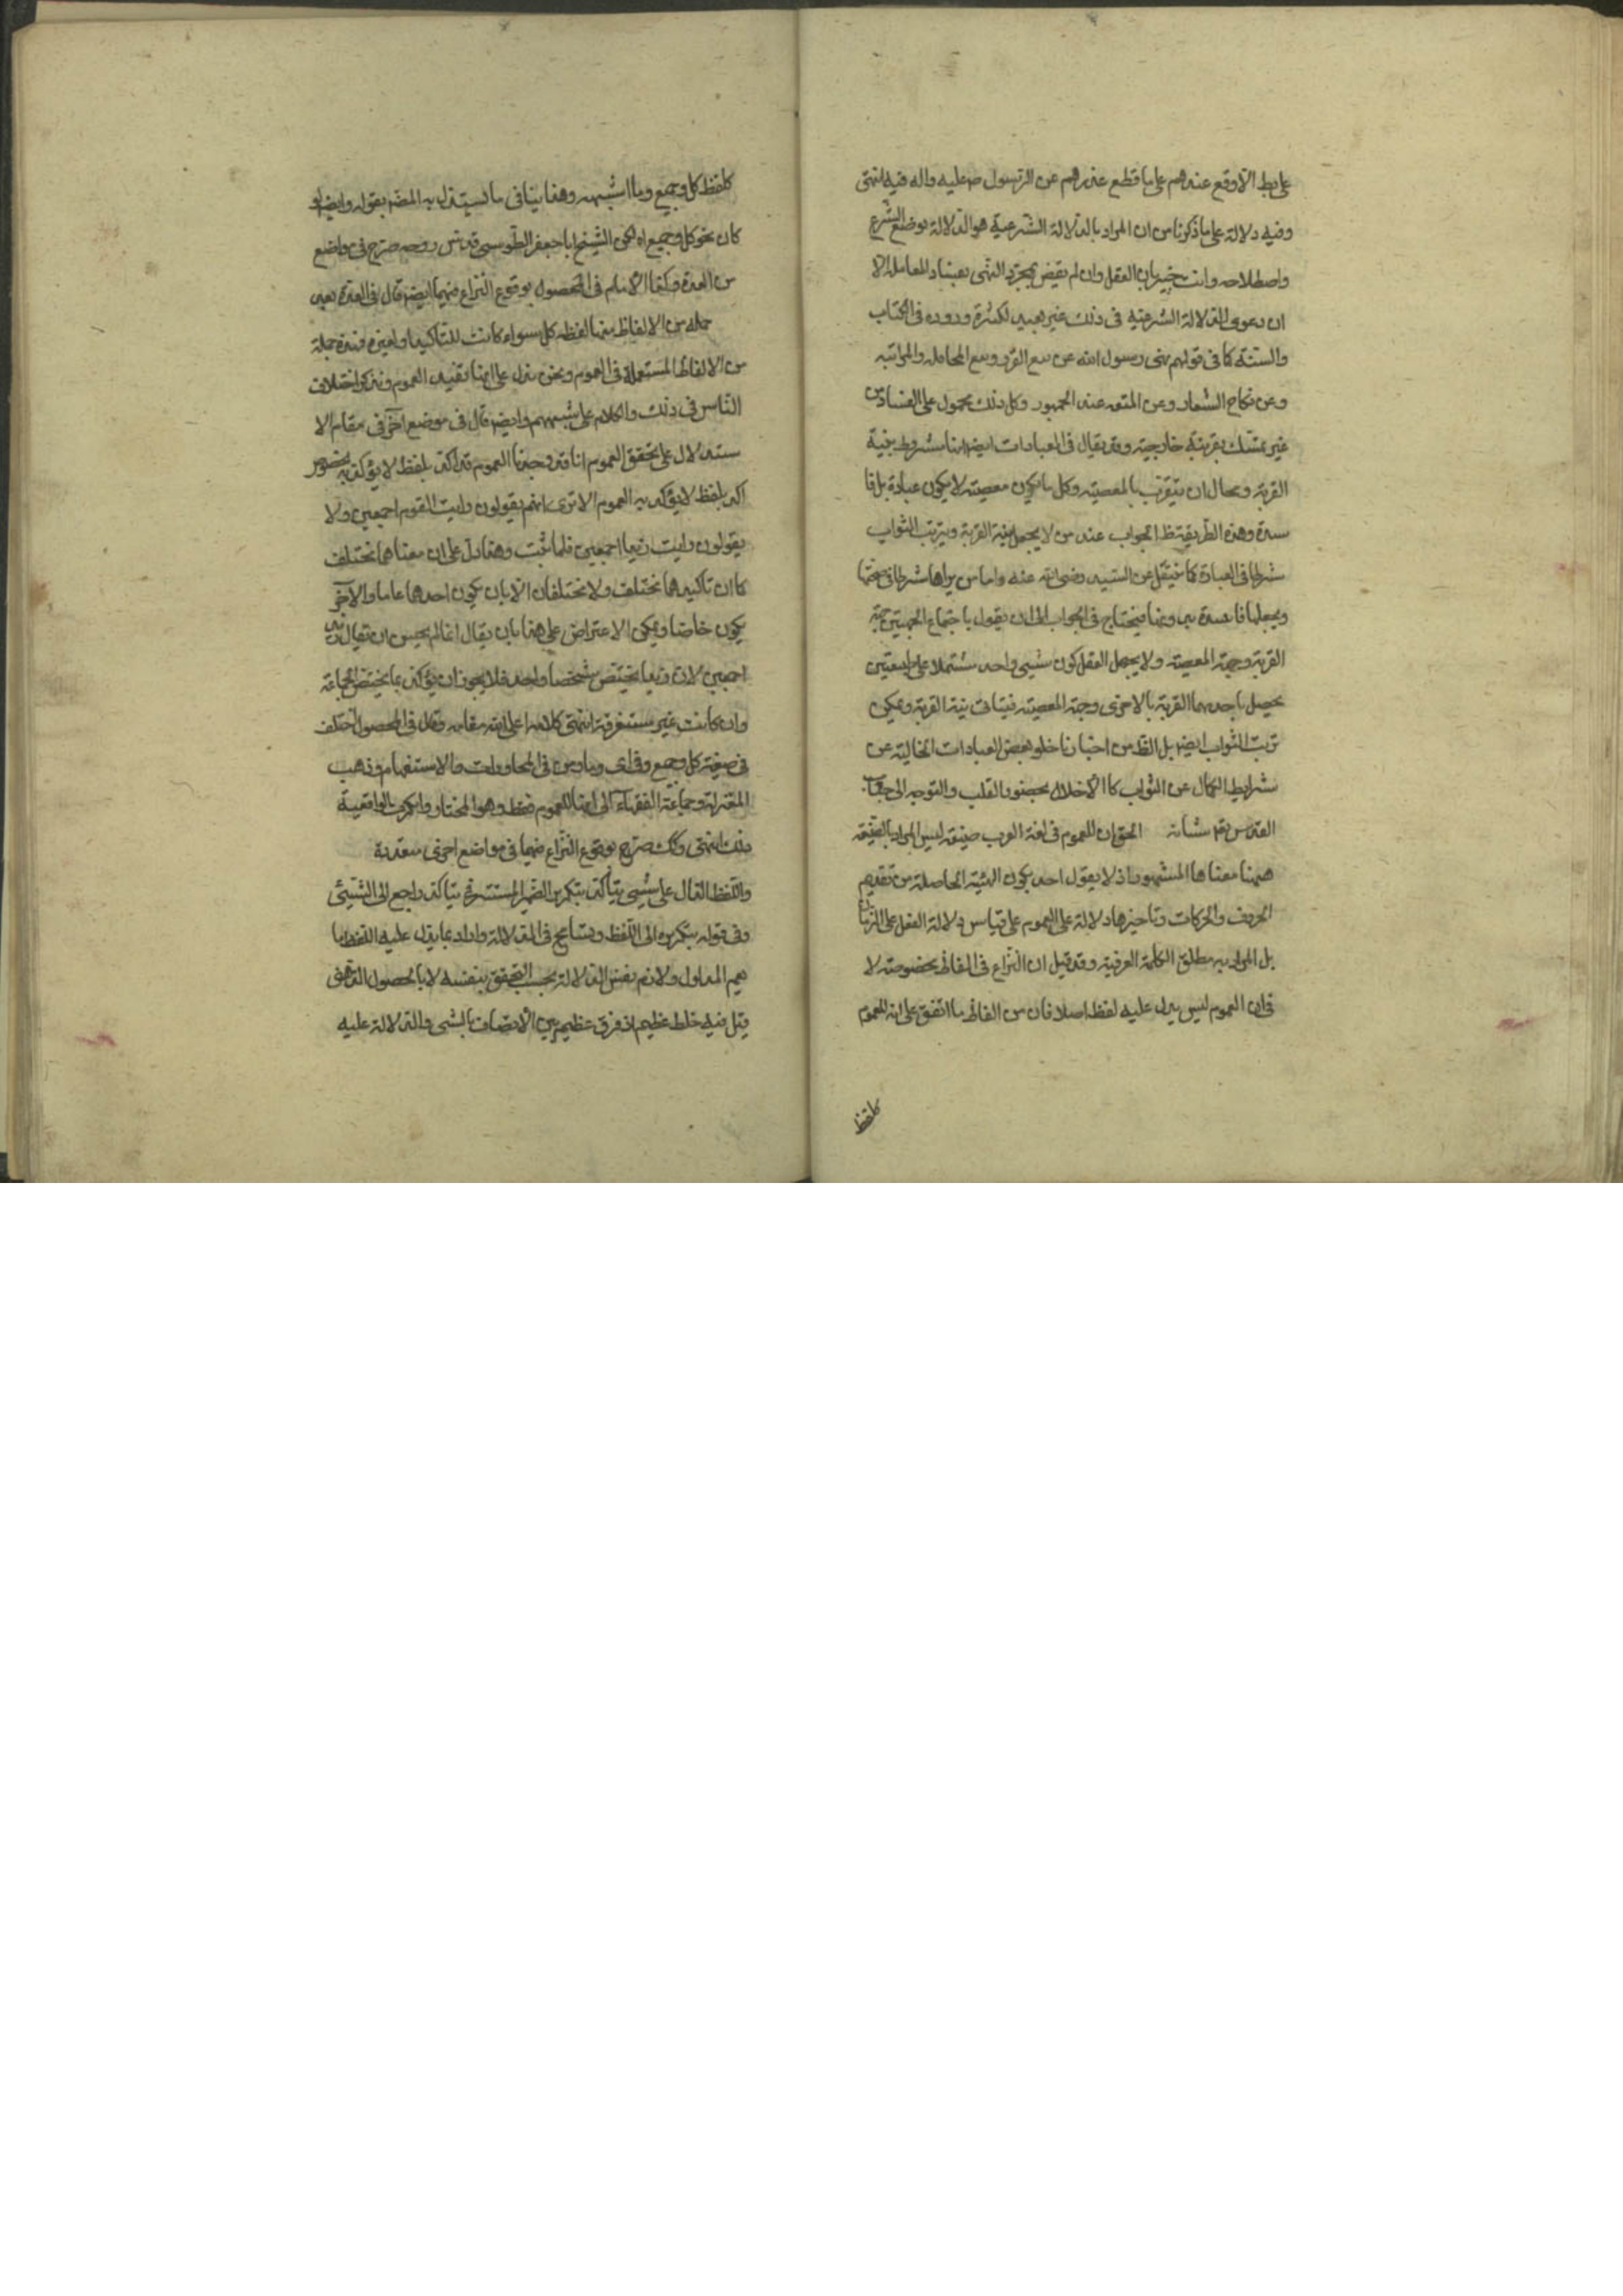 على بط الا وقع عندهم على ما قطع عذرهم عن الرسول ص عليه واله فيه انتهى
وفيه دلالة على ما ذكرنا من ان المراد بالدلالة الشرعية هو الدلالة بوضع الشرع
واصطلاحه وانت خبير بان العقل وان لم يقض بمجرد النهى بفساد المعاملة الا
ان دعوى الدلالة الشرعية فى ذلك غير بعيد لكثرة وروده فى الكتاب
والسنة كما فى قولهم نهى رسول الله عن بيع الغرر وبيع المحاقله والمزابنه
وعن نكاح الشغار وعن المتعه عند الجمهور وكل ذلك محمول على الفساد من
غير تمسك بقرينة خارجية وقد يقال فى العبادات ايضا انها مشروط بنية
القربة ومحال ان يتقرب بالمعصية وكل ما يكون معصية لا يكون عبادة بل فا
سدة وهذه الطريقة ظ الجواب عند من لا يجعل نية القربة وترتب الثواب
شرطا فى العبادة كما ينقل عن السيد رضى الله عنه واما من يراها شرطا فى صحتها
ويجعلها فاسدة بدونها فيحتاج فى الجواب الى ان يقول باجتماع الجهتين جهة
القربة وجهة المعصية ولا يحيل العقل كون شيى واحد مشتملا على طبيعتين
يحصل باحديهما القربة بالاخرى وجهة المعصية فيتاتى نية القربة ويمكن
ترتب الثواب ايضا بل الظ من اخبارنا خلو بعض العبادات الخالية عن
شرايط الكمال عن الثواب كالاخلال بحضور القلب والتوجه الى جناب
القدس تعم شانه الحق ان للعموم فى لغة العرب صيغة ليس المراد بالصيغة
ههنا معناها المشهور اذ لا يقول احد بكون الهيئة الحاصلة من تقديم
الحروف والحركات وتاخيرها دلالة على العموم على قياس دلالة الفعل على الزمان
بل المراد به مطلق الكلمة العرفية وقد قيل ان النزاع فى الفاظ مخصوصة لا
فى ان العموم ليس يدل عليه لفظ اصلا فان من الفاظ ما اتفق على انه للعموم
كلفظ
كلفظ كل وجميع وما اشبهه وهذا ينافى ما يستدل به المصم بقوله وايضا لو
كان نحو كل وجميع اه لكن الشيخ ابا جعفر الطوسى قدس روحه صرح فى مواضع
من العدة وكذا الامام فى المحصول بوقوع النزاع فيهما ايضا قال فى العدة بعد
جمله من الالفاظ منها لفظه كل سواء كانت للتاكيد او لغيره فهذه جملة
من الالفاظ المستعملة فى العموم ونحن ندل على انها تفيد العموم ونذكر اختلاف
الناس فى ذلك والكلام على شبههم وايضا قال فى موضع آخر فى مقام الا
ستدلال على تحقق العموم انا قد وجدنا العموم قد اكد بلفظ لا يؤكد به الخصوص
اكد بلفظ لا يؤكد به العموم الا ترى انهم يقولون رايت القوم اجمعين ولا
يقولون رايت زيدا اجمعين فلما ثبت وهذا دل على ان معناهما مختلف
كما ان تاكيدهما مختلف ولا يختلفان الا بان يكون احدهما عاما والآخر
يكون خاصا ويمكن الاعتراض على هذا بان يقال انما لم يحسن ان يقال زيد
اجمعين لان زيدا يختص شخصا واحد فلا يجوز ان يؤكد بما يختص الجماعة
وان كانت غير مستغرقة انتهى كلامه اعلى الله مقامه وقال فى المحصول اختلف
فى صيغة كل وجمع واى وما ومن فى المحاورات والاستفهام وذهب
المعتزلة وجماعة الفقهاء الى انها للعموم فقط وهو المختار وانكرت الواقفية
ذلك انتهى وكك صرح بوقوع النزاع فيهما فى مواضع اخرى معدنة
واللفظ الدال على شيى يتاكد بتكريره الضمير المستتر فى يتاكد راجع الى الشيئى
وفى قوله بتكريره الى اللفظ ويتسامح فى الدلالة واراد بما يدل عليه اللفظ ما
يعم المدلول ولازم نفس الدلالة بحسب التحقق بنفسه لا بالحصول الذهنى
قيل فيه خلط عظيم اذ فرق عظيم بين الاتصاف بالشى والدلالة عليه